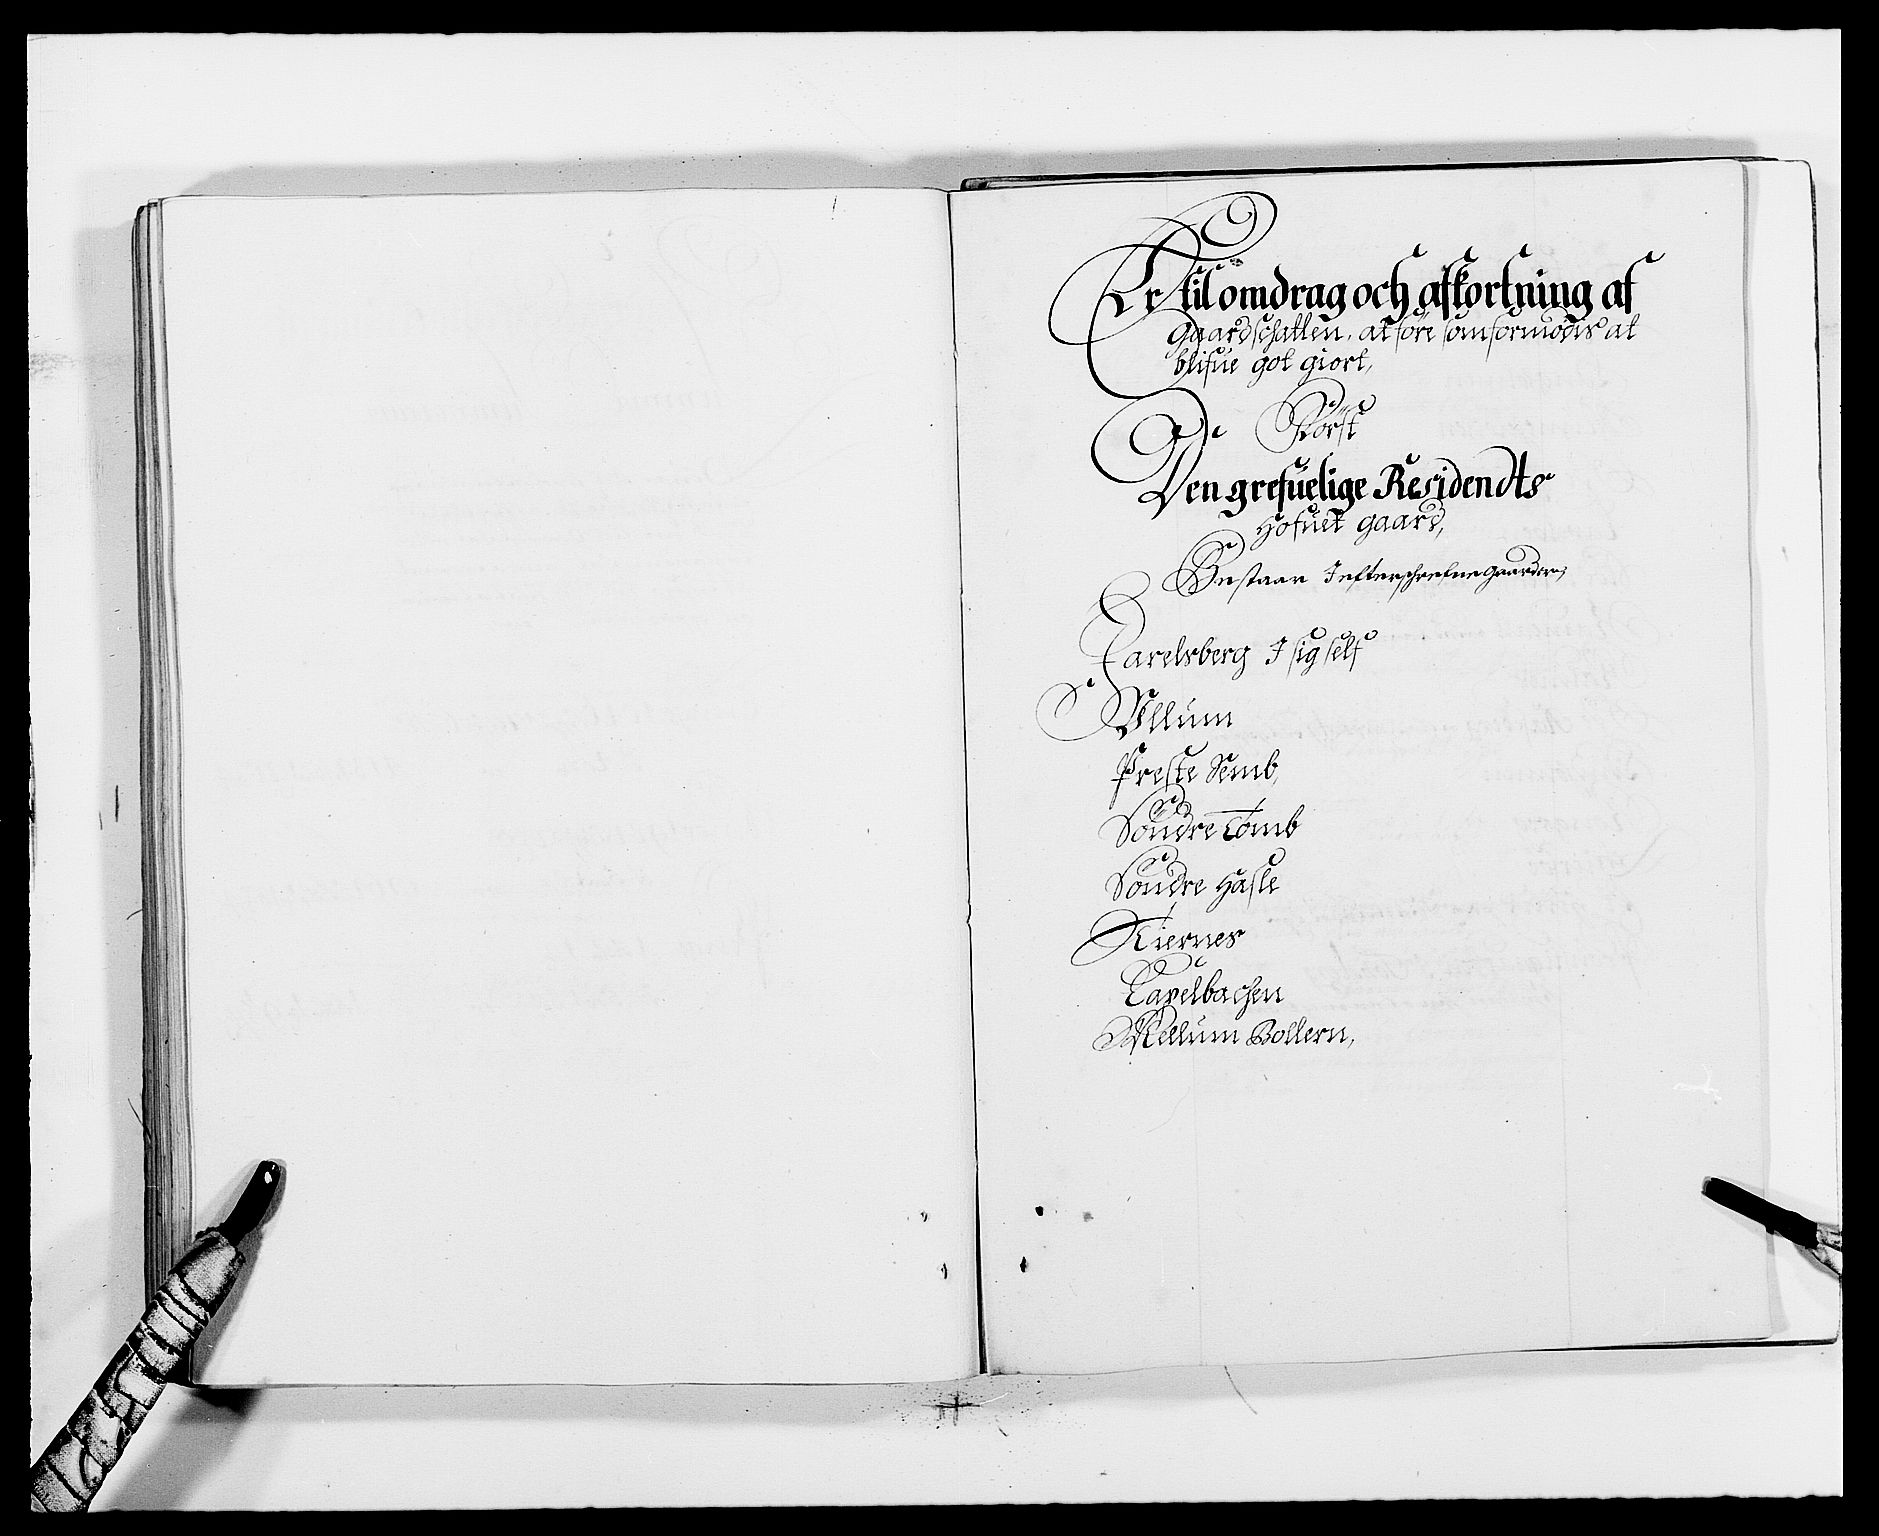 Er til omdrag och afkortning af
gaardschatten, at före som formodis at
blifue got giort,
Först
Den grefuelige Residendts
Hofuet gaard,
Bestaar I efterschrefne gaarder,
Jarelsberg I sig self
Ullum
Preste Semb,
Söndre Tomb
Söndre Hasle
Kiernes
Tavelbachen
Mellum Bollern,